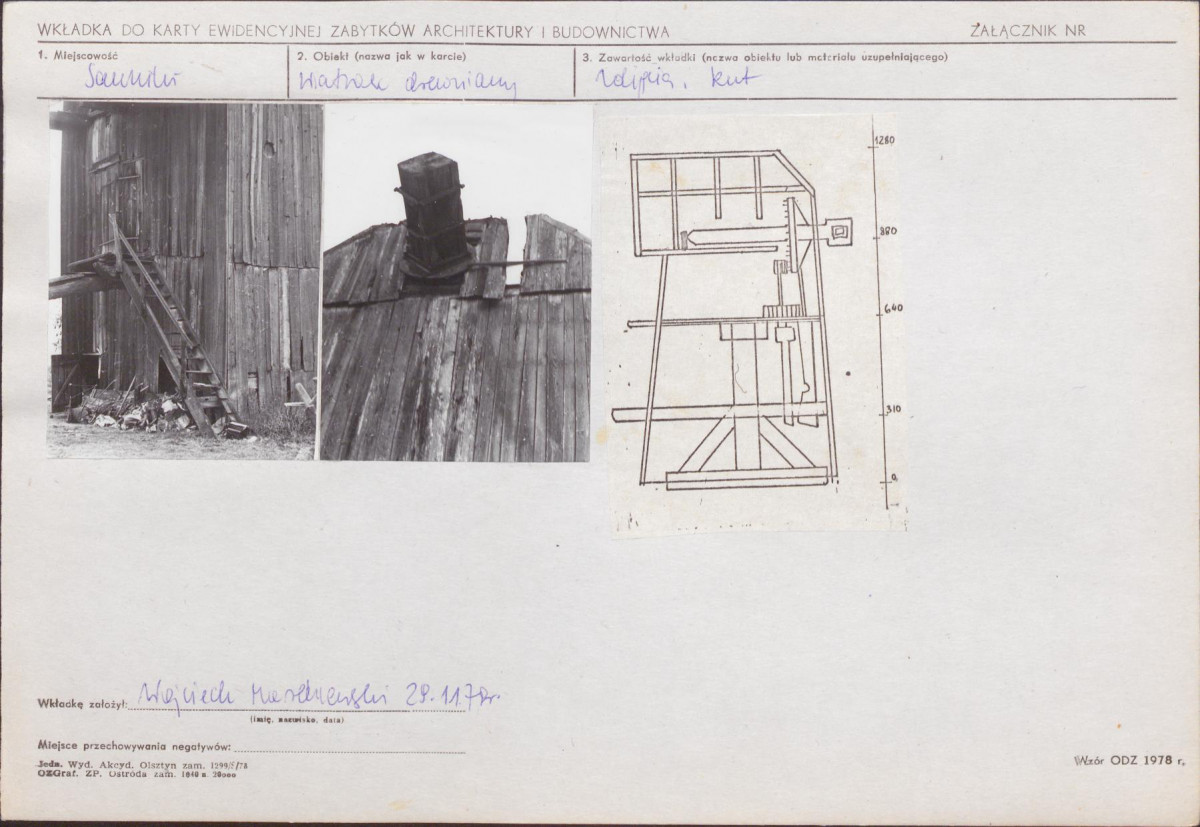 WKŁADKA DO KARTY EWIDENCYJNEJ ZABYTKÓW ARCHITEKTURY I BUDOWNICTWA
ZAŁĄCZNIK NR
1. Miejscowość
2. Obiekt (nazwa jak w karcie)
wiatrak drewniany
3. Zawartość wkładki (nazwa obiektu lub materiału uzupełniającego)
zdjęcia, rzut
1280
880
640
310
0
Wkładkę założył: Wojciech
(imię, nazwisko, data)
Miejsce przechowywania negatywów:
Jedn. Wyd. Akcyd. Olsztyn zam. 1299/Z/78
OZGraf. ZP. Ostróda zam. 1640 n. 20000
Wzór ODZ 1978 r.